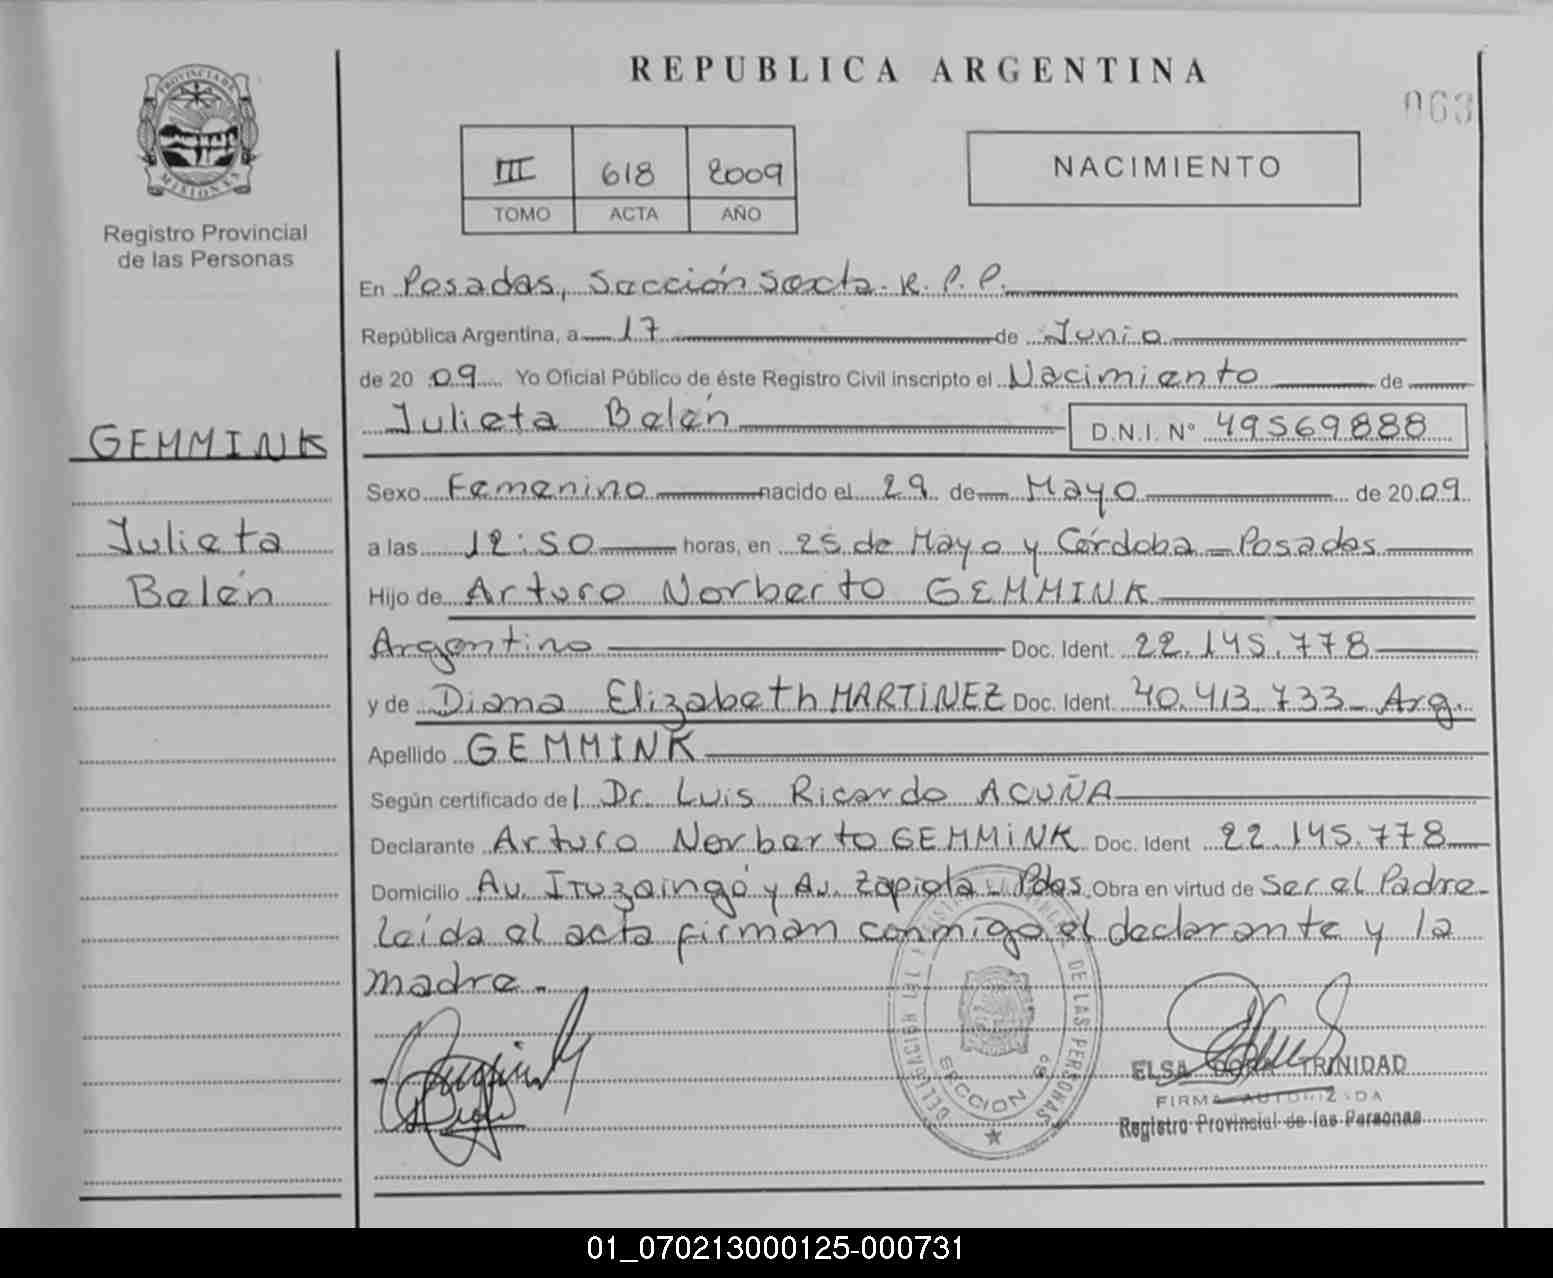 REPUBLICA ARGENTINA
063
PROVINCIA DE
MISIONES
Registro Provincial
de las Personas
III 618 2009
TOMO ACTA AÑO
NACIMIENTO
En Posadas, Sección Sexta. R. P. P.
República Argentina, a 17 de Junio
de 20 09 Yo Oficial Público de éste Registro Civil inscripto el Nacimiento de
Julieta Belén D.N.I. N° 49569888
GEMMINK
Sexo Femenino nacido el 29 de Mayo de 20 09
Julieta
a las 12:50 horas, en 25 de Mayo y Córdoba - Posadas
Belén
Hijo de Arturo Norberto GEMMINK
Argentino Doc. Ident. 22.145.778
y de Diana Elizabeth MARTINEZ Doc. Ident. 40.413.733 - Arg.
Apellido GEMMINK
Según certificado del Dr. Luis Ricardo ACUÑA
Declarante Arturo Norberto GEMMINK Doc. Ident 22.145.778
Domicilio Av. Ituzaingó y Av. Zapiola - Pdas. Obra en virtud de Ser el Padre-
Leída el acta firman conmigo el declarante y la
madre.-
DE LAS PERSONAS
SECCION 6°
ELSA TRINIDAD
FIRMA AUTORIZADA
Registro Provincial de las Personas
01_070213000125-000731